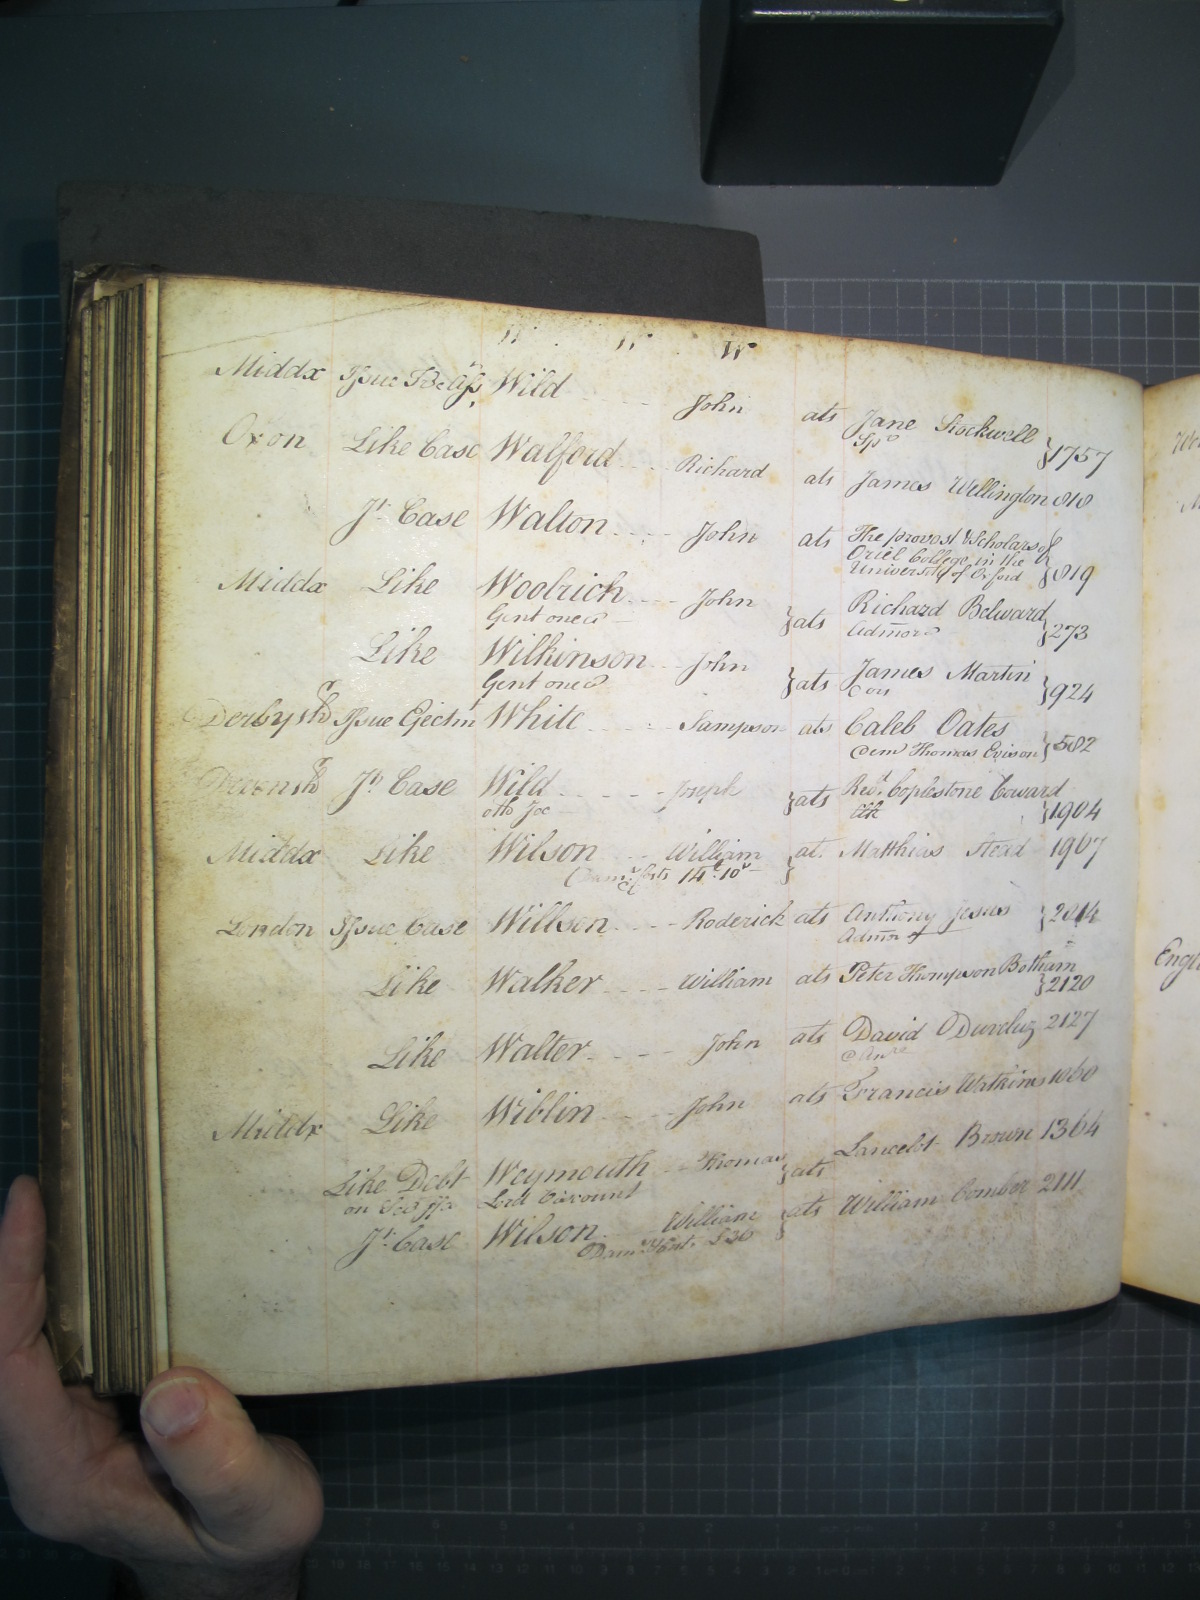 W W W
Middx Issue Wild John ats Jane Stockwell
Spr 1757
Oxon Like Case Walford Richard ats James Wellington 818
Jt Case Walton John ats The provost & Scholars of
Oriel College in the
University of Oxford 819
Middx Like Woolrich John ats Richard Belward
Gent one &c Admor &c 273
Like Wilkinson John ats James Martin
Gent one &c 924
Derbysh Issue Ejectmt White Sampson ats Caleb Oates
Dem Thomas Evison 582
Devonsh Jt Case Wild Joseph ats Revd Coplestone Coward
oths Joe Clk 1904
Middx Like Wilson William ats Matthias Stead 1967
Dam. Costs 14.10
London Issue Case Willson Roderick ats Anthony Jesus 2014
Admor
Like Walker William ats Peter Thompson Botham
2120
Like Walter John ats David 2127
Middx Like Wiblin John ats Francis Watkins 1060
Like Debt Weymouth Thomas ats Lancelot Brown 1364
on Sci ffa Lord Viscount
Jt Case Wilson William ats William Comber 2111
Dam. £30